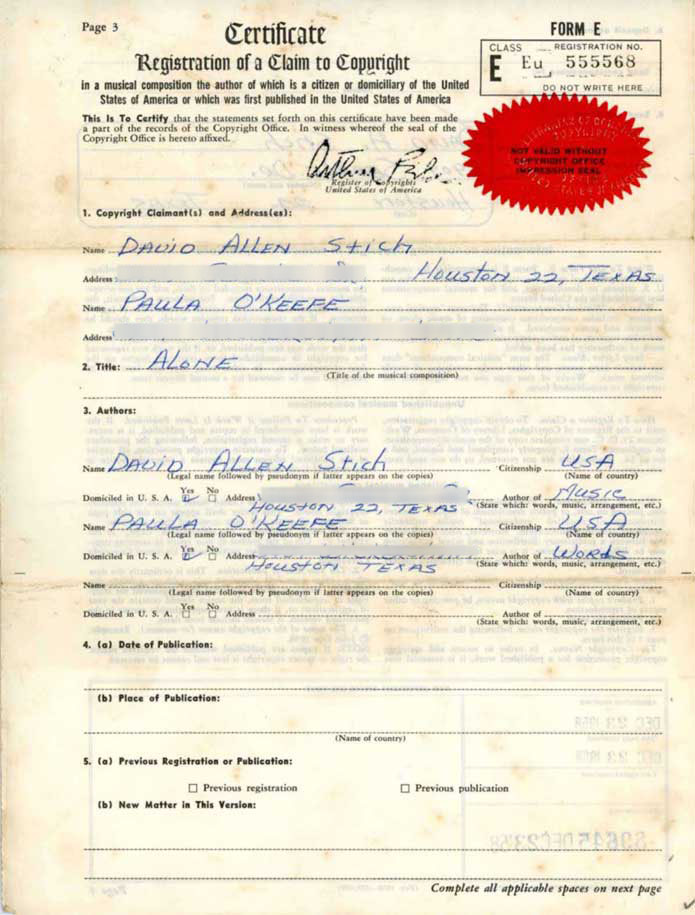 Page 3
Certificate
Registration of a Claim to Copyright
in a musical composition the author of which is a citizen or domiciliary of the United
States of America or which was first published in the United States of America
This Is To Certify that the statements set forth on this certificate have been made
a part of the records of the Copyright Office. In witness whereof the seal of the
Copyright Office is hereto affixed.
FORM E
CLASS REGISTRATION NO.
E Eu 555568
DO NOT WRITE HERE
NOT VALID WITHOUT
COPYRIGHT OFFICE
IMPRESSION SEAL
Register of Copyrights
United States of America
1. Copyright Claimant(s) and Address(es):
Name DAVID ALLEN Stich
Address HOUSTON 22, TEXAS
Name PAULA O'KEEFE
Address
2. Title: ALONE
(Title of the musical composition)
3. Authors:
Name DAVID ALLEN Stich Citizenship USA
(Legal name followed by pseudonym if latter appears on the copies) (Name of country)
Domiciled in U. S. A. Yes No Address Author of MUSIC
HOUSTON 22, TEXAS (State which: words, music, arrangement, etc.)
Name PAULA O'KEEFE Citizenship USA
(Legal name followed by pseudonym if latter appears on the copies) (Name of country)
Domiciled in U. S. A. Yes No Address Author of WORDS
HOUSTON TEXAS (State which: words, music, arrangement, etc.)
Name Citizenship
(Legal name followed by pseudonym if latter appears on the copies) (Name of country)
Domiciled in U. S. A. Yes No Address Author of
(State which: words, music, arrangement, etc.)
4. (a) Date of Publication:
(b) Place of Publication:
(Name of country)
5. (a) Previous Registration or Publication:
Previous registration Previous publication
(b) New Matter in This Version:
Complete all applicable spaces on next page